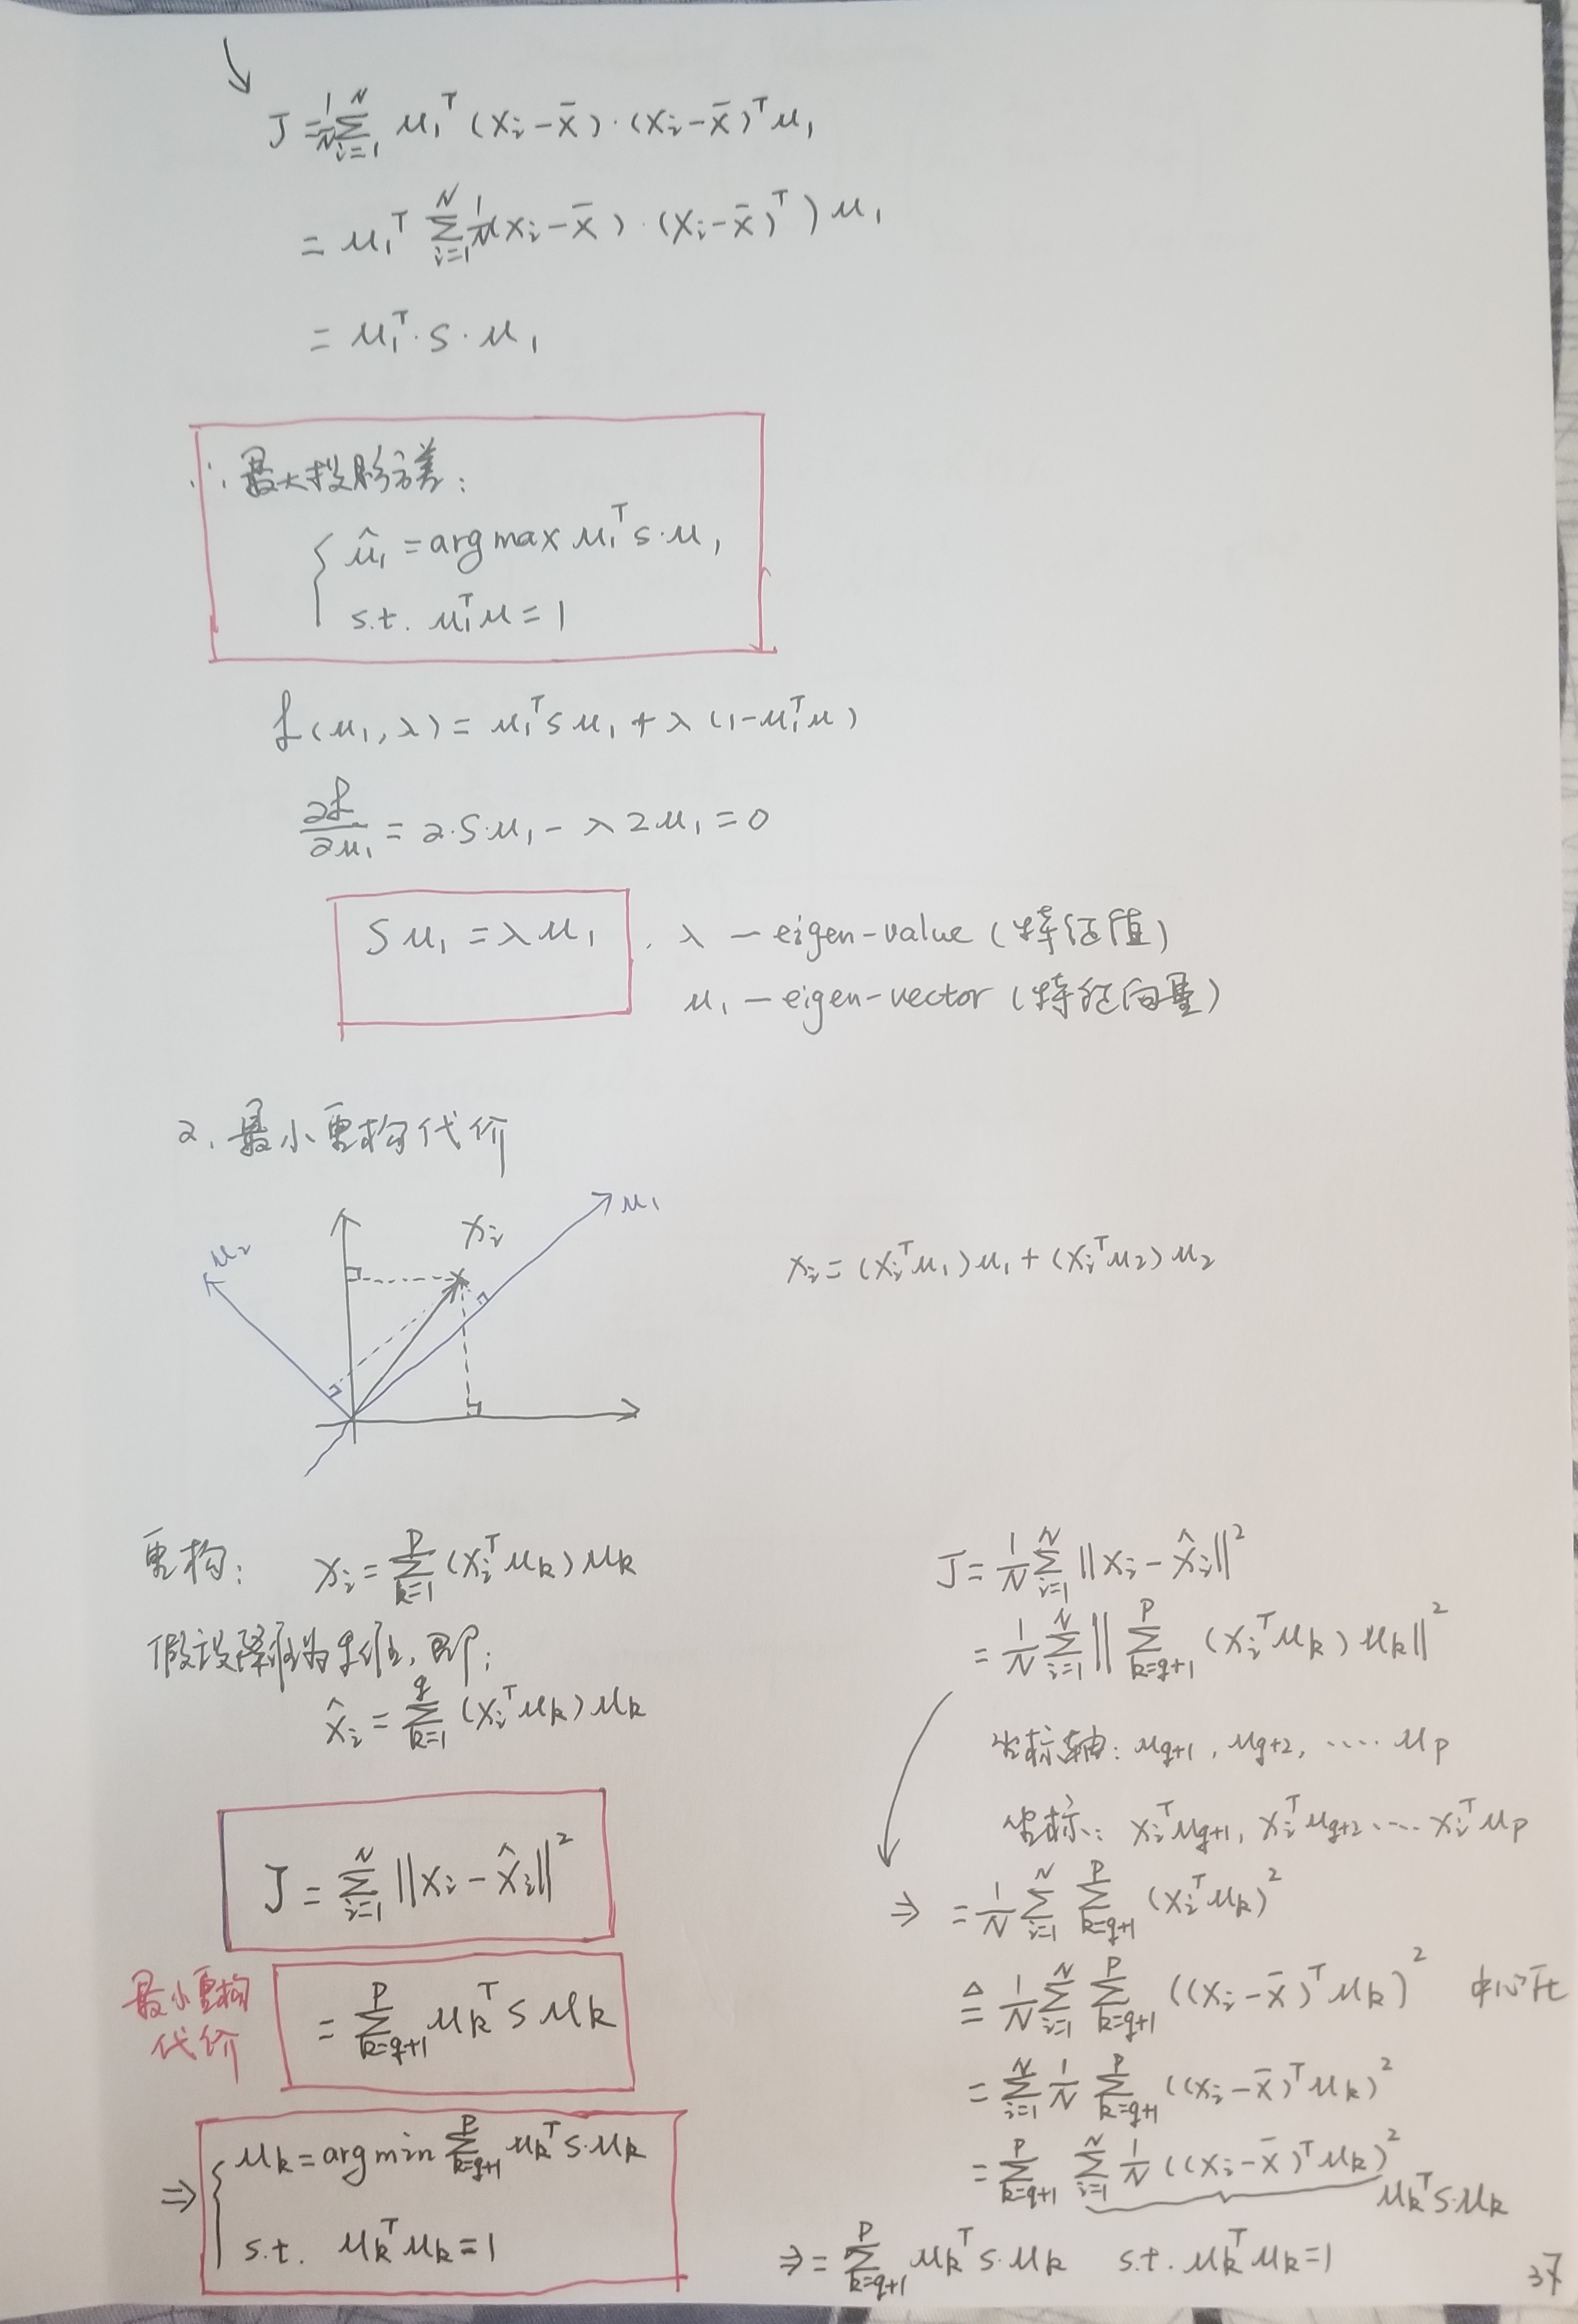 J = 1/N ∑_{i=1}^{N} u₁ᵀ(xᵢ-x̄)·(xᵢ-x̄)ᵀu₁
= u₁ᵀ ∑_{i=1}^{N} 1/N (xᵢ-x̄)·(xᵢ-x̄)ᵀ) u₁
= u₁ᵀ·S·u₁
∴ 最大投影方差:
û₁ = argmax u₁ᵀS·u₁
s.t. u₁ᵀu = 1
ℒ(u₁, λ) = u₁ᵀSu₁ + λ(1-u₁ᵀu)
∂ℒ/∂u₁ = 2·S·u₁ - λ2u₁ = 0
Su₁ = λu₁ . λ — eigen-value (特征值)
u₁ — eigen-vector (特征向量)
2. 最小重构代价
u₂ xᵢ u₁
xᵢ = (xᵢᵀu₁)u₁ + (xᵢᵀu₂)u₂
重构: xᵢ = ∑_{k=1}^{p} (xᵢᵀu_k)u_k
假设降维为q维, 即:
x̂ᵢ = ∑_{k=1}^{q} (xᵢᵀu_k)u_k
J = ∑_{i=1}^{N} ||xᵢ - x̂ᵢ||²
最小重构
代价
= ∑_{k=q+1}^{p} u_kᵀSu_k
⇒ u_k = argmin ∑_{k=q+1}^{p} u_kᵀS·u_k
s.t. u_kᵀu_k = 1
J = 1/N ∑_{i=1}^{N} ||xᵢ - x̂ᵢ||²
= 1/N ∑_{i=1}^{N} || ∑_{k=q+1}^{p} (xᵢᵀu_k)u_k ||²
坐标轴: u_{q+1}, u_{q+2}, ····· u_p
坐标: xᵢᵀu_{q+1}, xᵢᵀu_{q+2} ···· xᵢᵀu_p
⇒ = 1/N ∑_{i=1}^{N} ∑_{k=q+1}^{p} (xᵢᵀu_k)²
≜ 1/N ∑_{i=1}^{N} ∑_{k=q+1}^{p} ((xᵢ-x̄)ᵀu_k)² 中心化
= ∑_{i=1}^{N} 1/N ∑_{k=q+1}^{p} ((xᵢ-x̄)ᵀu_k)²
= ∑_{k=q+1}^{p} ∑_{i=1}^{N} 1/N ((xᵢ-x̄)ᵀu_k)²
u_kᵀS·u_k
⇒ = ∑_{k=q+1}^{p} u_kᵀS·u_k s.t. u_kᵀu_k = 1
37